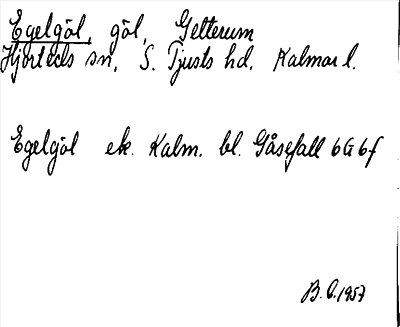 Egelgöl, göl, Getterum
Hjorteds sn, S. Tjusts hd, Kalmar l.
Egelgöl ek. Kalm. bl. Gåsefall 6G 6f
B. O. 1957